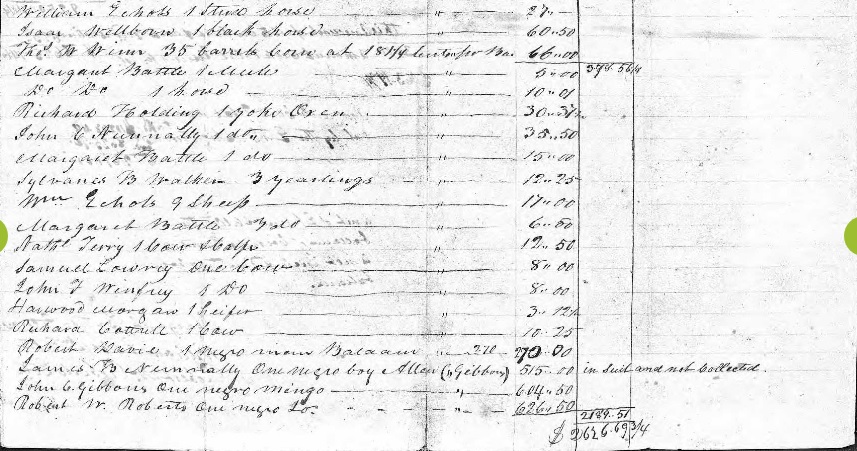 William Echols 1 Stud horse " 27 " —
Isaac Wellborn 1 black horse " 60 " 50
Thos. W Winn 35 barrels corn at 18 1/4 cents per Ba. 66 " 00
Margaret Battle 1 Mule " 5 " 00
Do Do 1 horse " 10 " 01
Richard Holding 1 yoke Oxen " 30 " 31 1/4
John C Nunnally 1 do " " 35 " 50
Margaret Battle 1 do " 15 " 00
Sylvanus B Walker 3 yearlings " 12 " 25
Wm Echols 9 Sheep " 17 " 00
Margaret Battle 3 do " 6 " 50
Nathl Terry 1 Cow & Calf " 12 " 50
Samuel Lowrey One Cow " 8 " 00
John F Winfrey 1 Do " 8 " 00
Harwood Morgan 1 heifer " 3 " 12 1/2
Richard Cottrell 1 Cow " 10 " 25
Robert Davis 1 negro man Balaam " 270 270 " 00
James B Nunnally One negro boy Allen (" Gibbons) 515 " 00 in Suit and not Collected.
John C Gibbons One negro Mingo " 604 " 50
Robert W. Roberts One negro " 626 " 50
2189.51
$ 2626.69 3/4